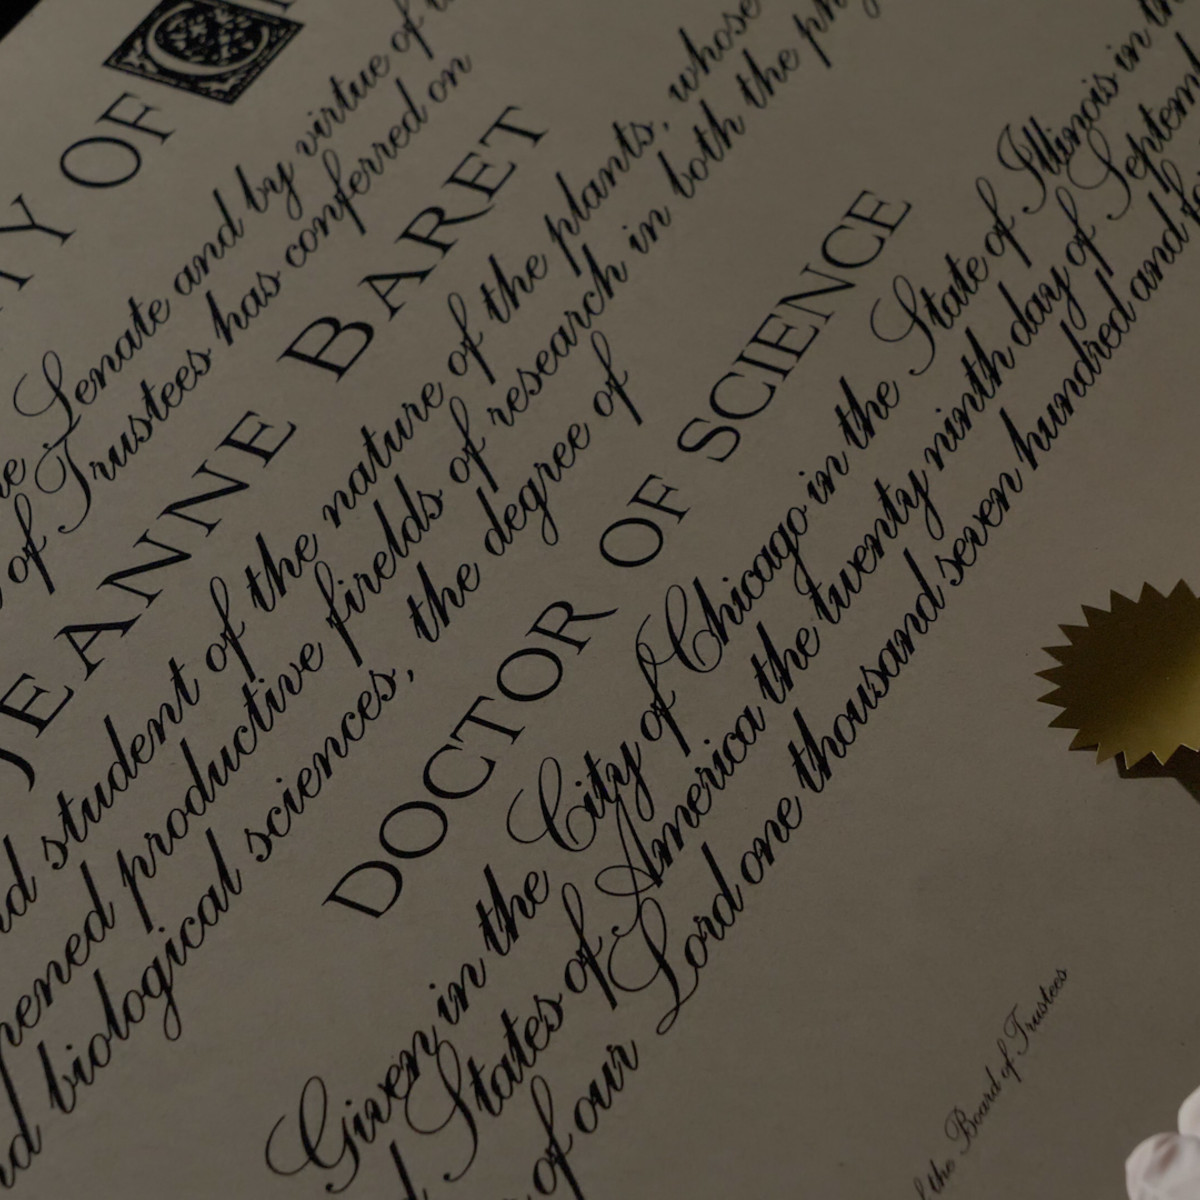 TY OF C
Senate and by virtue of
of Trustees has conferred on
JEANNE BARET
student of the nature of the plants, whose
productive firelds of research in both the
biological sciences, the degree of
DOCTOR OF SCIENCE
Given in the City of Chicago in the State of Illinois in
States of America the twenty ninth day of Septem
of our Lord one thousand seven hundred and
the Board of Trustees